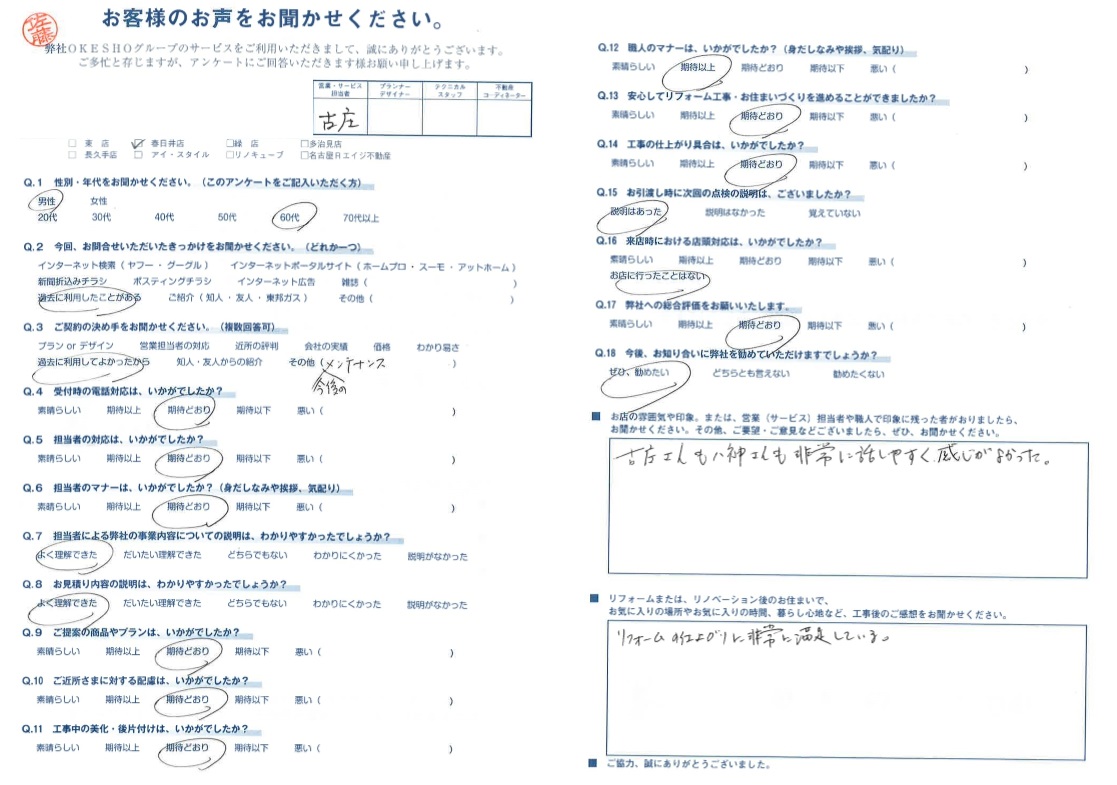 お客様のお声をお聞かせください。
佐藤
弊社OKESHOグループのサービスをご利用いただきまして、誠にありがとうございます。
ご多忙と存じますが、アンケートにご回答いただきます様お願い申し上げます。
営業・サービス担当者 プランナーデザイナー テクニカルスタッフ 不動産コーディネーター
古庄
□ 東 店 ☑ 春日井店 □緑 店 □多治見店
□ 長久手店 □ アイ・スタイル □リノキューブ □名古屋Rエイジ不動産
Q.1 性別・年代をお聞かせください。（このアンケートをご記入いただく方）
男性 女性
20代 30代 40代 50代 60代 70代以上
Q.2 今回、お問合せいただいたきっかけをお聞かせください。（どれか一つ）
インターネット検索（ヤフー・グーグル） インターネットポータルサイト（ホームプロ・スーモ・アットホーム）
新聞折込みチラシ ポスティングチラシ インターネット広告 雑誌（ ）
過去に利用したことがある ご紹介（知人・友人・東邦ガス） その他（ ）
Q.3 ご契約の決め手をお聞かせください。（複数回答可）
プラン or デザイン 営業担当者の対応 近所の評判 会社の実績 価格 わかり易さ
過去に利用してよかったから 知人・友人からの紹介 その他（メンテナンス ）
今後の
Q.4 受付時の電話対応は、いかがでしたか？
素晴らしい 期待以上 期待どおり 期待以下 悪い（ ）
Q.5 担当者の対応は、いかがでしたか？
素晴らしい 期待以上 期待どおり 期待以下 悪い（ ）
Q.6 担当者のマナーは、いかがでしたか？（身だしなみや挨拶、気配り）
素晴らしい 期待以上 期待どおり 期待以下 悪い（ ）
Q.7 担当者による弊社の事業内容についての説明は、わかりやすかったでしょうか？
よく理解できた だいたい理解できた どちらでもない わかりにくかった 説明がなかった
Q.8 お見積り内容の説明は、わかりやすかったでしょうか？
よく理解できた だいたい理解できた どちらでもない わかりにくかった 説明がなかった
Q.9 ご提案の商品やプランは、いかがでしたか？
素晴らしい 期待以上 期待どおり 期待以下 悪い（ ）
Q.10 ご近所さまに対する配慮は、いかがでしたか？
素晴らしい 期待以上 期待どおり 期待以下 悪い（ ）
Q.11 工事中の美化・後片付けは、いかがでしたか？
素晴らしい 期待以上 期待どおり 期待以下 悪い（ ）
Q.12 職人のマナーは、いかがでしたか？（身だしなみや挨拶、気配り）
素晴らしい 期待以上 期待どおり 期待以下 悪い（ ）
Q.13 安心してリフォーム工事・お住まいづくりを進めることができましたか？
素晴らしい 期待以上 期待どおり 期待以下 悪い（ ）
Q.14 工事の仕上がり具合は、いかがでしたか？
素晴らしい 期待以上 期待どおり 期待以下 悪い（ ）
Q.15 お引渡し時に次回の点検の説明は、ございましたか？
説明はあった 説明はなかった 覚えていない
Q.16 来店時における店頭対応は、いかがでしたか？
素晴らしい 期待以上 期待どおり 期待以下 悪い（ ）
お店に行ったことはない
Q.17 弊社への総合評価をお願いいたします。
素晴らしい 期待以上 期待どおり 期待以下 悪い（ ）
Q.18 今後、お知り合いに弊社を勧めていただけますでしょうか？
ぜひ、勧めたい どちらとも言えない 勧めたくない
■ お店の雰囲気や印象。または、営業（サービス）担当者や職人で印象に残った者がおりましたら、
お聞かせください。その他、ご要望・ご意見などございましたら、ぜひ、お聞かせください。
古庄さんも八神さんも非常に話しやすく、感じがよかった。
■ リフォームまたは、リノベーション後のお住まいで、
お気に入りの場所やお気に入りの時間、暮らし心地など、工事後のご感想をお聞かせください。
リフォームの仕上がりに非常に満足している。
■ ご協力、誠にありがとうございました。